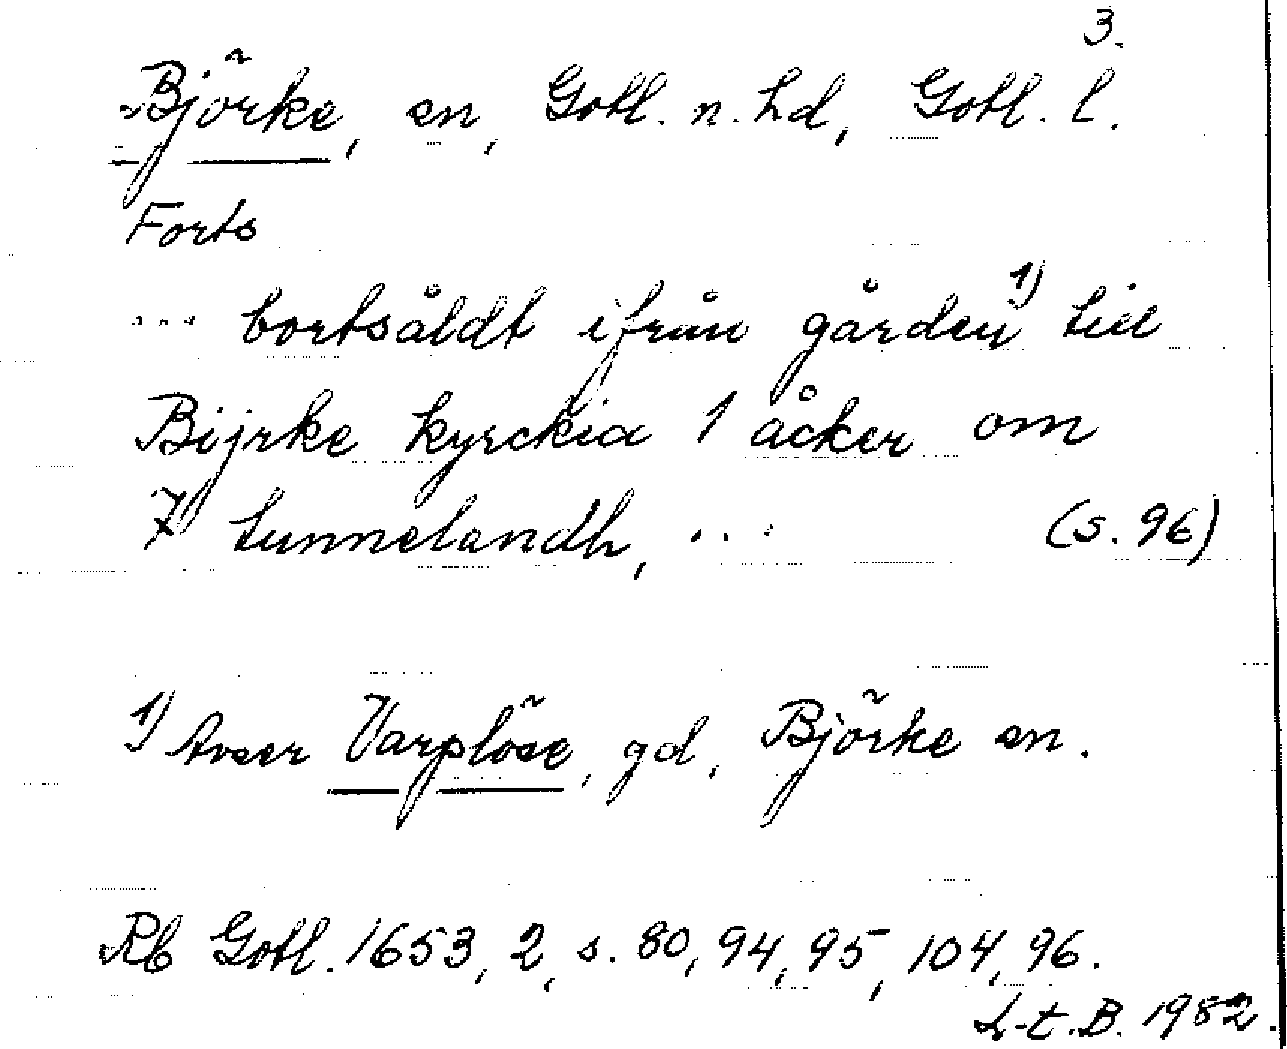 3.
Björke, sn, Gotl. n. hd, Gotl. l.
Forts
... bortsåldt ifrån gården 1) till
Bijrke kyrckia 1 åcker om
7 tunnelandh, ... (s. 96)
1) Avser Varplöse, gd, Björke sn.
Rb Gotl. 1653, 2, s. 80, 94, 95, 104, 96.
L-t. B. 1982.